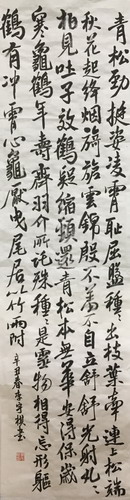 青松勁挺姿凌霄恥屈盤種種出枝葉牽連上松端
秋花起絳烟旖旎雲錦殷不羞不自立舒舒光射丸
丸柏見吐子效鶴疑縮頸還青松本無華安得保歲
寒龜鶴年壽齊羽介所託殊種種是靈物相得忘形軀
鶴有沖霄心龜厭曳尾居以竹兩附
辛丑春李宇書